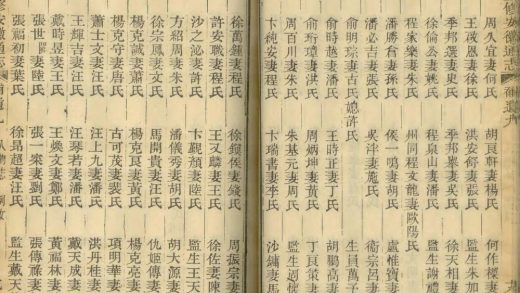 修安徽通志 補遺九
周久宜妻何氏 胡良軒妻楊氏 何作樑
王葳恩妻徐氏 洪安舒妻張氏 監生朱加
季邦選妻史氏 季邦畢妻奚氏 徐天相妻
徐倫公妻姚氏 程泉山妻潘氏 監生謝禮
程家樂妻朱氏 州同程文龍妻歐陽氏
潘勝有妻孫氏 侯一鳴妻胡氏 盧惟賓
潘必吉妻張氏 吳泮妻施氏 衛宗呂妻
俞明琮妻古氏媳許氏 生員萬子
俞時越妻謝氏 王時正妻丁氏 胡鵬高
俞珩璋妻洪氏 周炳坤妻黃氏 丁良策妻
周百川妻朱氏 朱基元妻周氏 監生
卞純安妻程氏 卞瑞書妻李氏 沙鏽妻馬
徐萬鍾妻程氏 徐侯妻錢氏 周振宗妻
許安職妻程氏 王又麟妻王氏 徐佐妻陳
沙之泌妻許氏 卞覲頫妻陸氏 監生王天
方紹周妻朱氏 潘儀秀妻胡氏 胡大源妻
徐宗鳳妻文氏 馬開貴妻汪氏 仇姬傳妻
楊克誠妻蕭氏 楊克良妻黃氏 楊克亮妻
楊克守妻唐氏 古可茂妻裴氏 項明華妻
蕭士文妻汪氏 汪上九妻潘氏 洪丹桂妻
王輝吉妻汪氏 汪琴若妻潘氏 戴天成妻
戴時昱妻王氏 王煥文妻鄭氏 黃福林妻
張世妻陸氏 張一來妻劉氏 張傳祿妻
張福初妻葉氏 徐昂超妻汪氏 監生戴天
修安徽通志 補遺九 人物志 列女